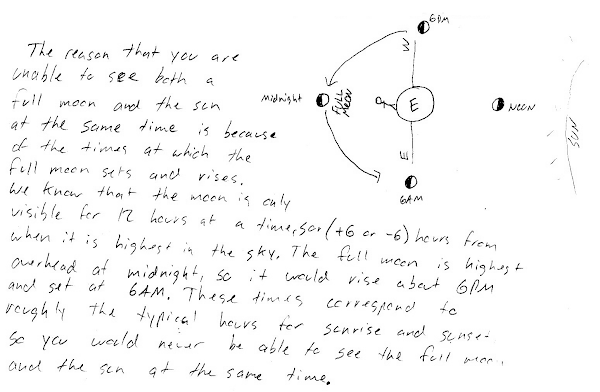 The reason that you are
unable to see both a
full moon and the sun
at the same time is because
of the times at which the
full moon sets and rises.
We know that the moon is only
visible for 12 hours at a time, or (+6 or -6) hours from
when it is highest in the sky. The full moon is highest
overhead at midnight, so it would rise about 6PM
and set at 6AM. These times correspond to
roughly the typical hours for sunrise and sunset
so you would never be able to see the full moon
and the sun at the same time.
6PM
W
Midnight
FULL
MOON
E
NOON
SUN
E
6AM